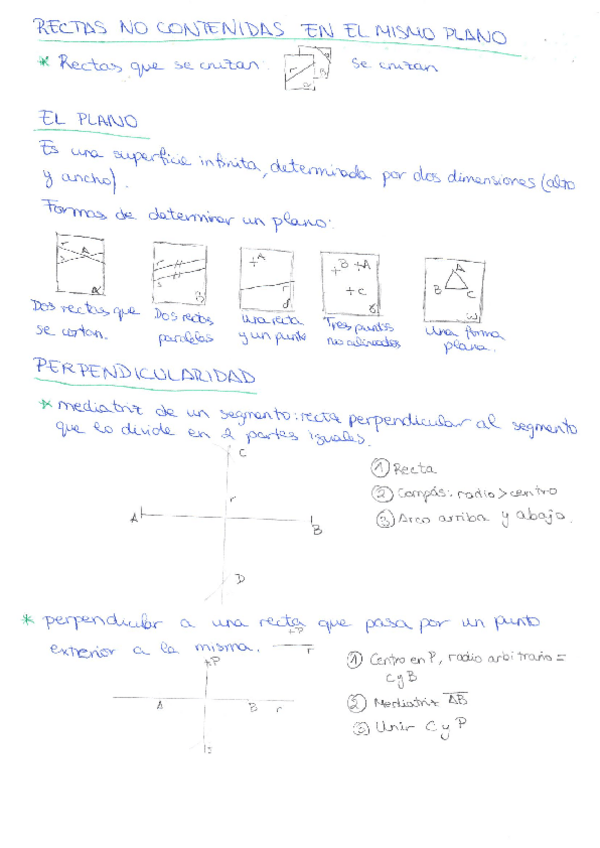 RECTAS NO CONTENIDAS EN EL MISMO PLANO
* Rectas que se cruzan: se cruzan
EL PLANO
Es una superficie infinita, determinada por dos dimensiones (alto
y ancho).
Formas de determinar un plano:
r A s α
r s β
A r
B A C γ
A B C ω
Dos rectas que
se cortan.
Dos rectas
paralelas
una recta
y un punto
Tres puntos
no alineados
Una forma
plana.
PERPENDICULARIDAD
* mediatriz de un segmento: recta perpendicular al segmento
que lo divide en 2 partes iguales.
C
r
A
B
D
① Recta
② Compás: radio > centro
③ Arco arriba y abajo.
* perpendicular a una recta que pasa por un punto
exterior a la misma. +P r
+P
A B r
① Centro en P, radio arbitrario =
C y B
② Mediatriz AB
③ Unir C y P